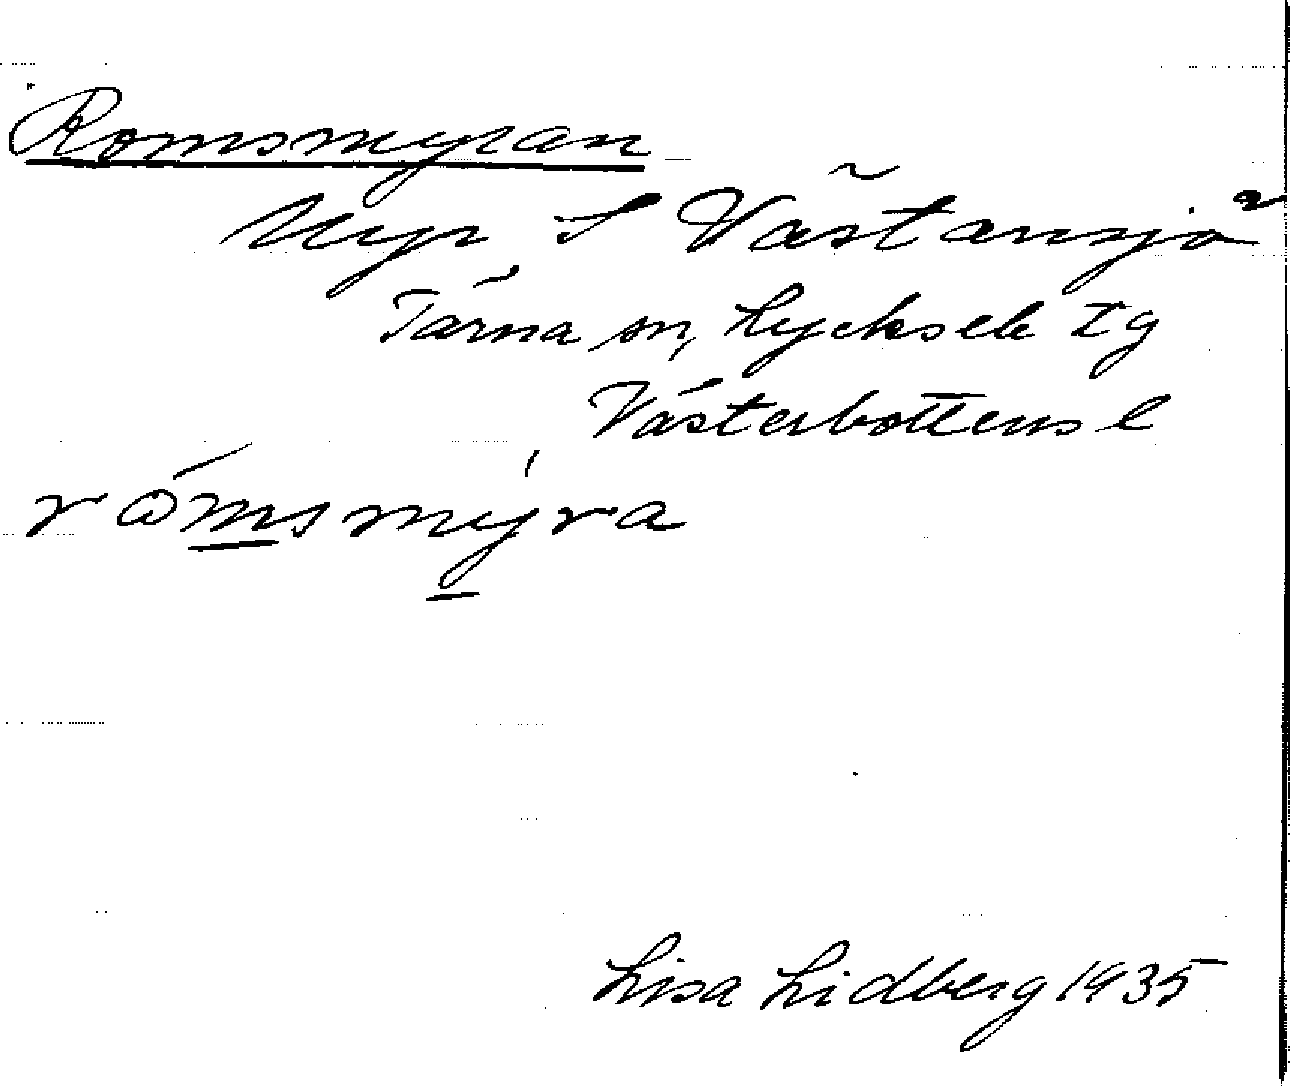 Romsmyran
Myr S Västansjö
Tärna sn, Lycksele tg
Västerbottens l
Lisa Lidberg 1935